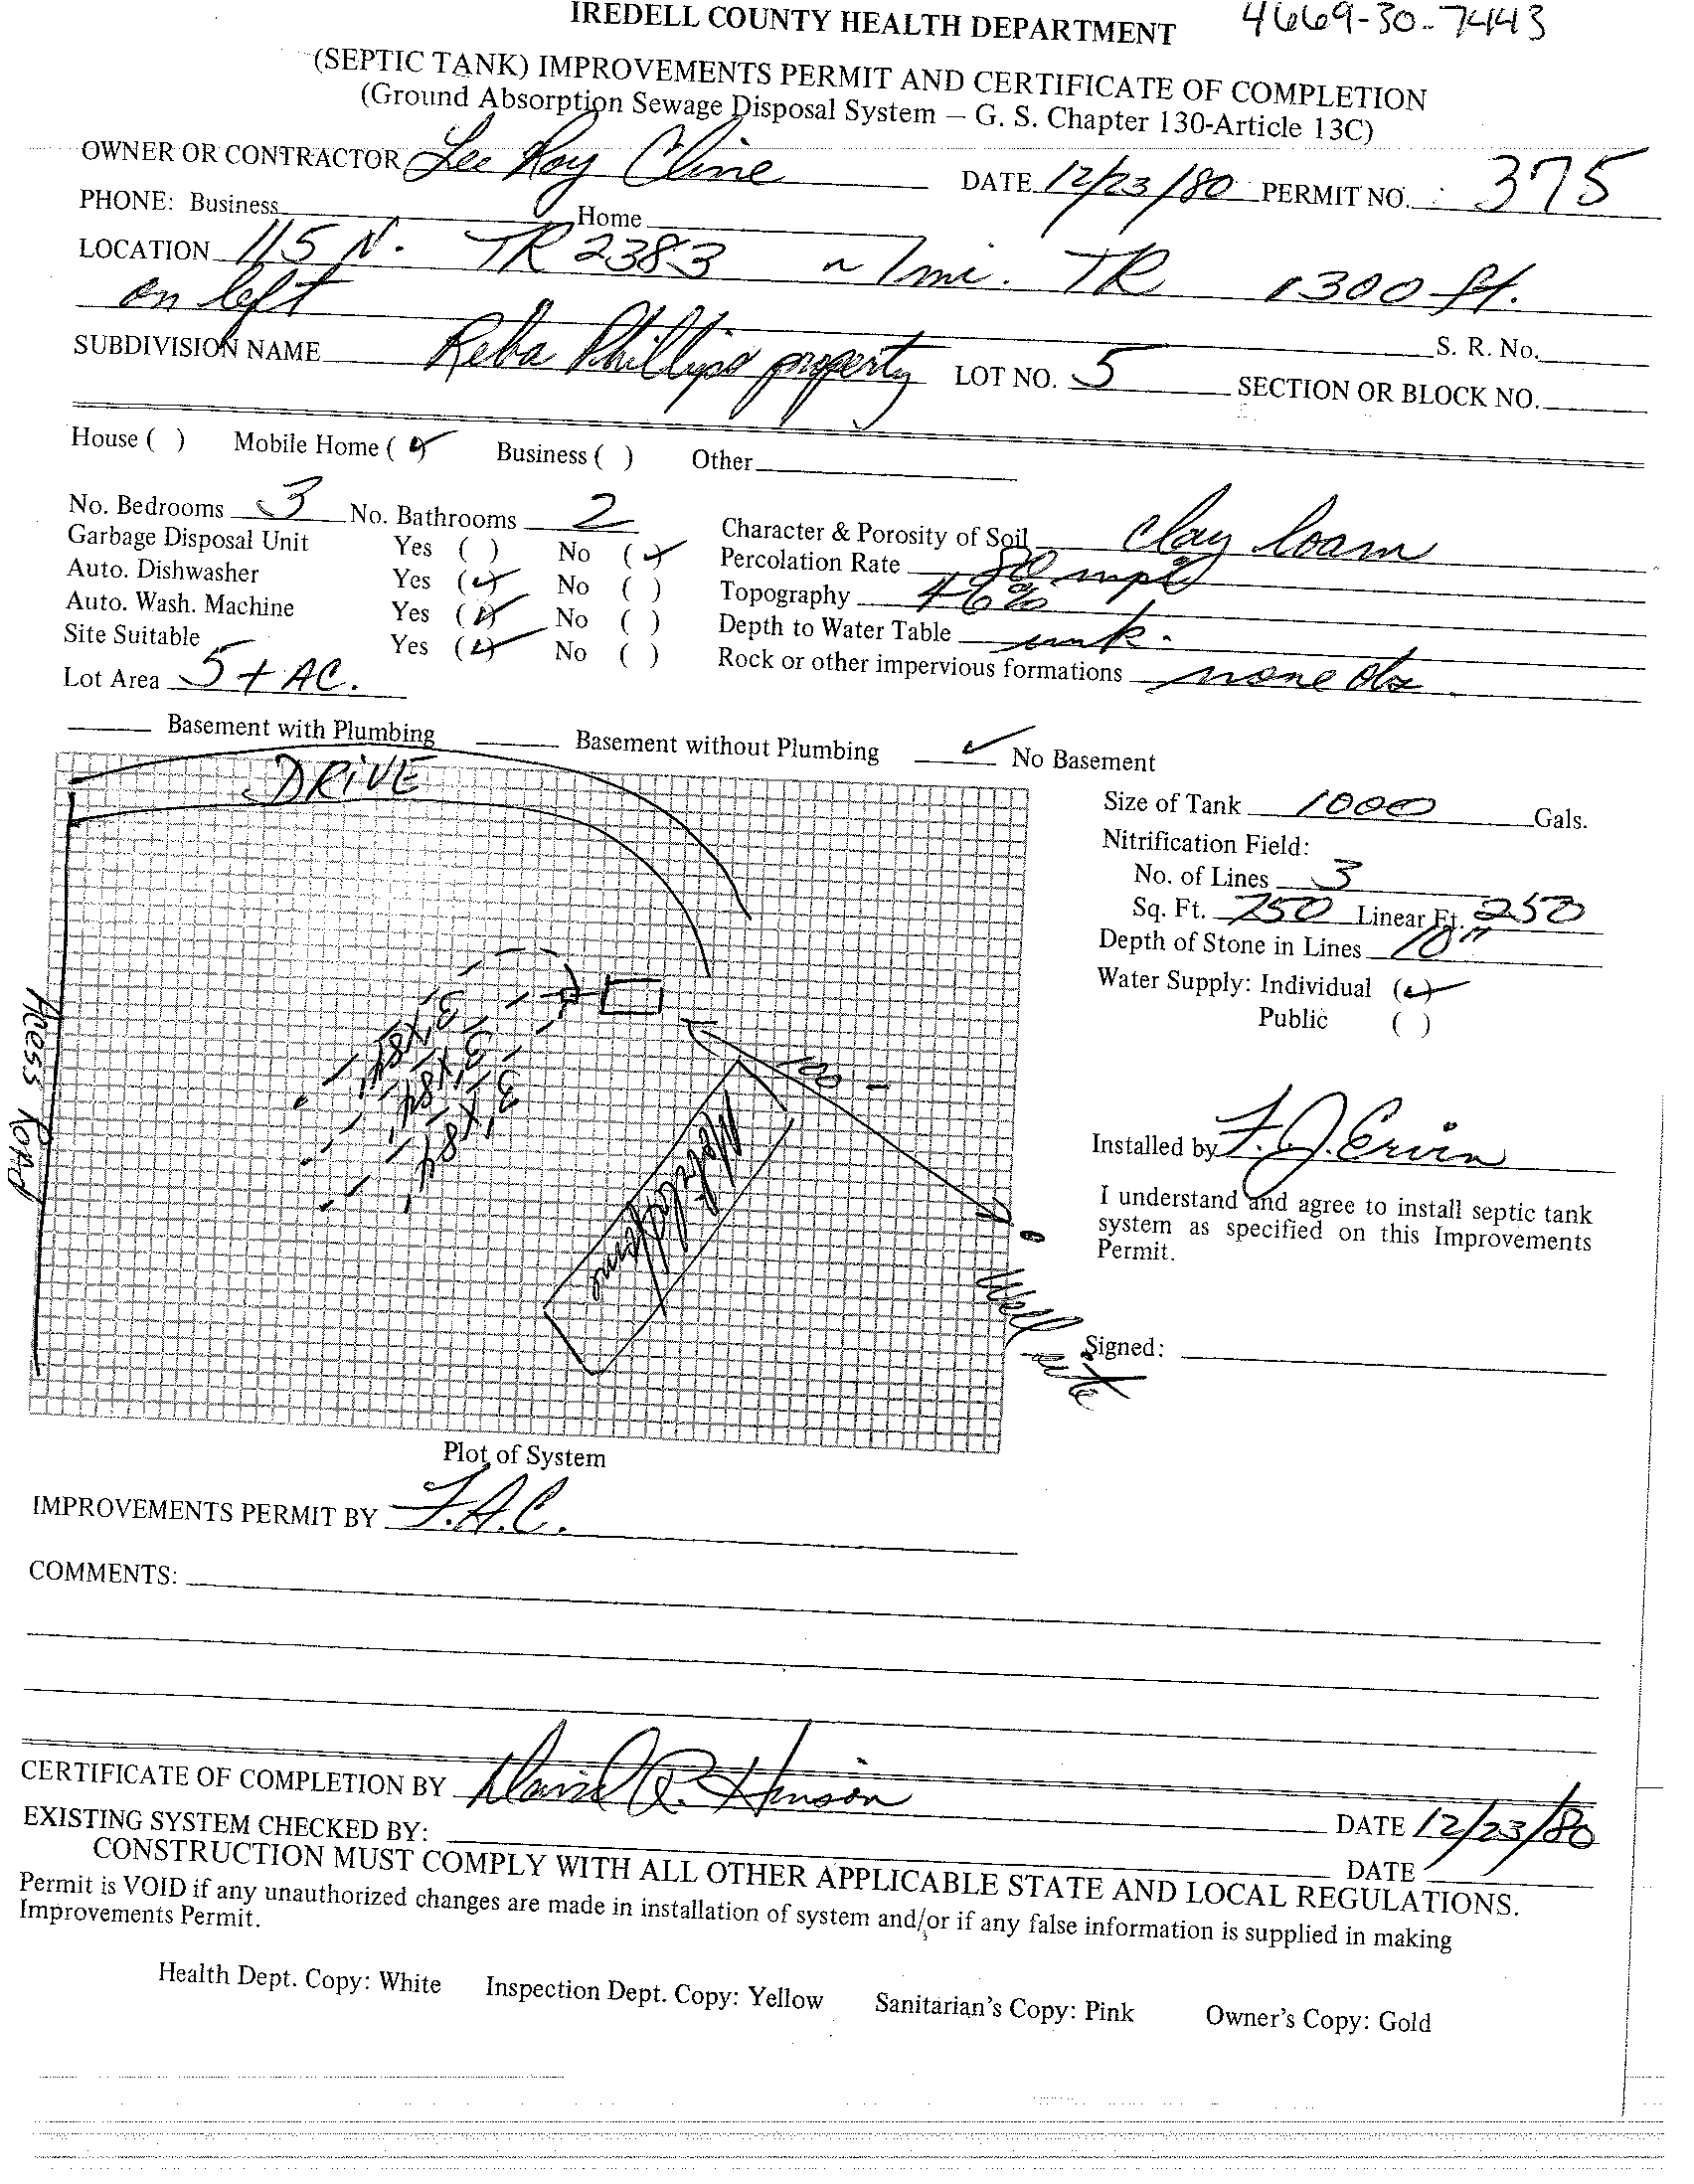 IREDELL COUNTY HEALTH DEPARTMENT 4669-30-7443
(SEPTIC TANK) IMPROVEMENTS PERMIT AND CERTIFICATE OF COMPLETION
(Ground Absorption Sewage Disposal System – G. S. Chapter 130-Article 13C)
OWNER OR CONTRACTOR Lee Roy Cline DATE 12/23/80 PERMIT NO. 375
PHONE: Business Home
LOCATION 115 N. TR 2383 ~ 1 mi. TR 1300 ft.
on left
S. R. No.
SUBDIVISION NAME Reba Phillips property LOT NO. 5 SECTION OR BLOCK NO.
House ( ) Mobile Home (✓) Business ( ) Other
No. Bedrooms 3 No. Bathrooms 2
Garbage Disposal Unit Yes ( ) No (✓)
Auto. Dishwasher Yes (✓) No ( )
Auto. Wash. Machine Yes (✓) No ( )
Site Suitable Yes (✓) No ( )
Lot Area 5 + AC.
Character & Porosity of Soil clay loam
Percolation Rate 80 mpi
Topography 4-6%
Depth to Water Table unk.
Rock or other impervious formations none obs
Basement with Plumbing Basement without Plumbing ✓ No Basement
DRIVE
Access Road
3'x84'
3'x84'
3'x84'
100 -
Mobil home
Well site
Plot of System
Size of Tank 1000 Gals.
Nitrification Field:
No. of Lines 3
Sq. Ft. 750 Linear Ft. 250
Depth of Stone in Lines 10"
Water Supply: Individual (✓)
Public ( )
Installed by F. J. Ervin
I understand and agree to install septic tank
system as specified on this Improvements
Permit.
Signed:
IMPROVEMENTS PERMIT BY F.A.C.
COMMENTS:
CERTIFICATE OF COMPLETION BY David R. Hinson DATE 12/23/80
EXISTING SYSTEM CHECKED BY: DATE
CONSTRUCTION MUST COMPLY WITH ALL OTHER APPLICABLE STATE AND LOCAL REGULATIONS.
Permit is VOID if any unauthorized changes are made in installation of system and/or if any false information is supplied in making
Improvements Permit.
Health Dept. Copy: White Inspection Dept. Copy: Yellow Sanitarian's Copy: Pink Owner's Copy: Gold